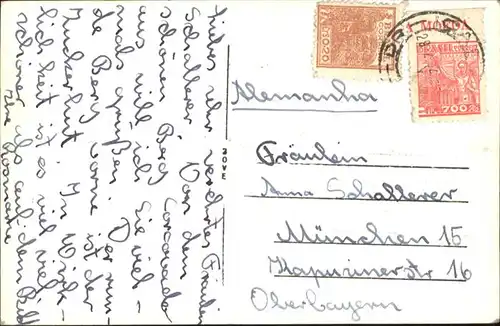 Liebes sehr verehrtes Fräulein
Schallerer! Von dem
schönen Berg Corcovado
aus will ich Sie viel-
mals grüßen. Der run-
de Berg vorne ist der
Zuckerhut. In Wirk-
lichkeit ist es viel viel
schöner als auf dem Bild
Ihre Rosmarie
Alemanha
Fräulein
Anna Schallerer
München 15
Kapuzinerstr 16
Oberbayern
700